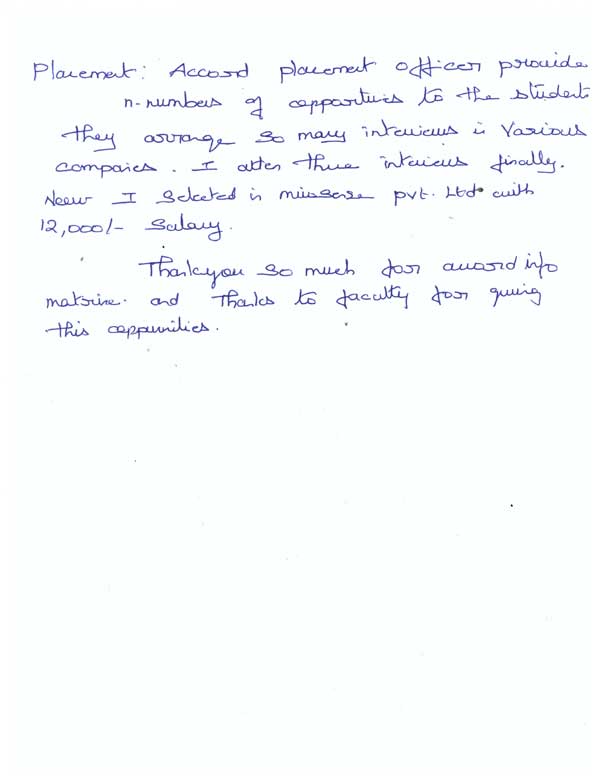 Placement: Accord placement officer provide
n-numbers of oppartuies to the students
they arrange so many interviews in Various
companies. I atten three interviews finally.
Now I Selected in missense pvt. Ltd with
12,000/- Salary.
Thankyou so much for accord info
matrine. and Thanks to faculty for giving
this oppunities.